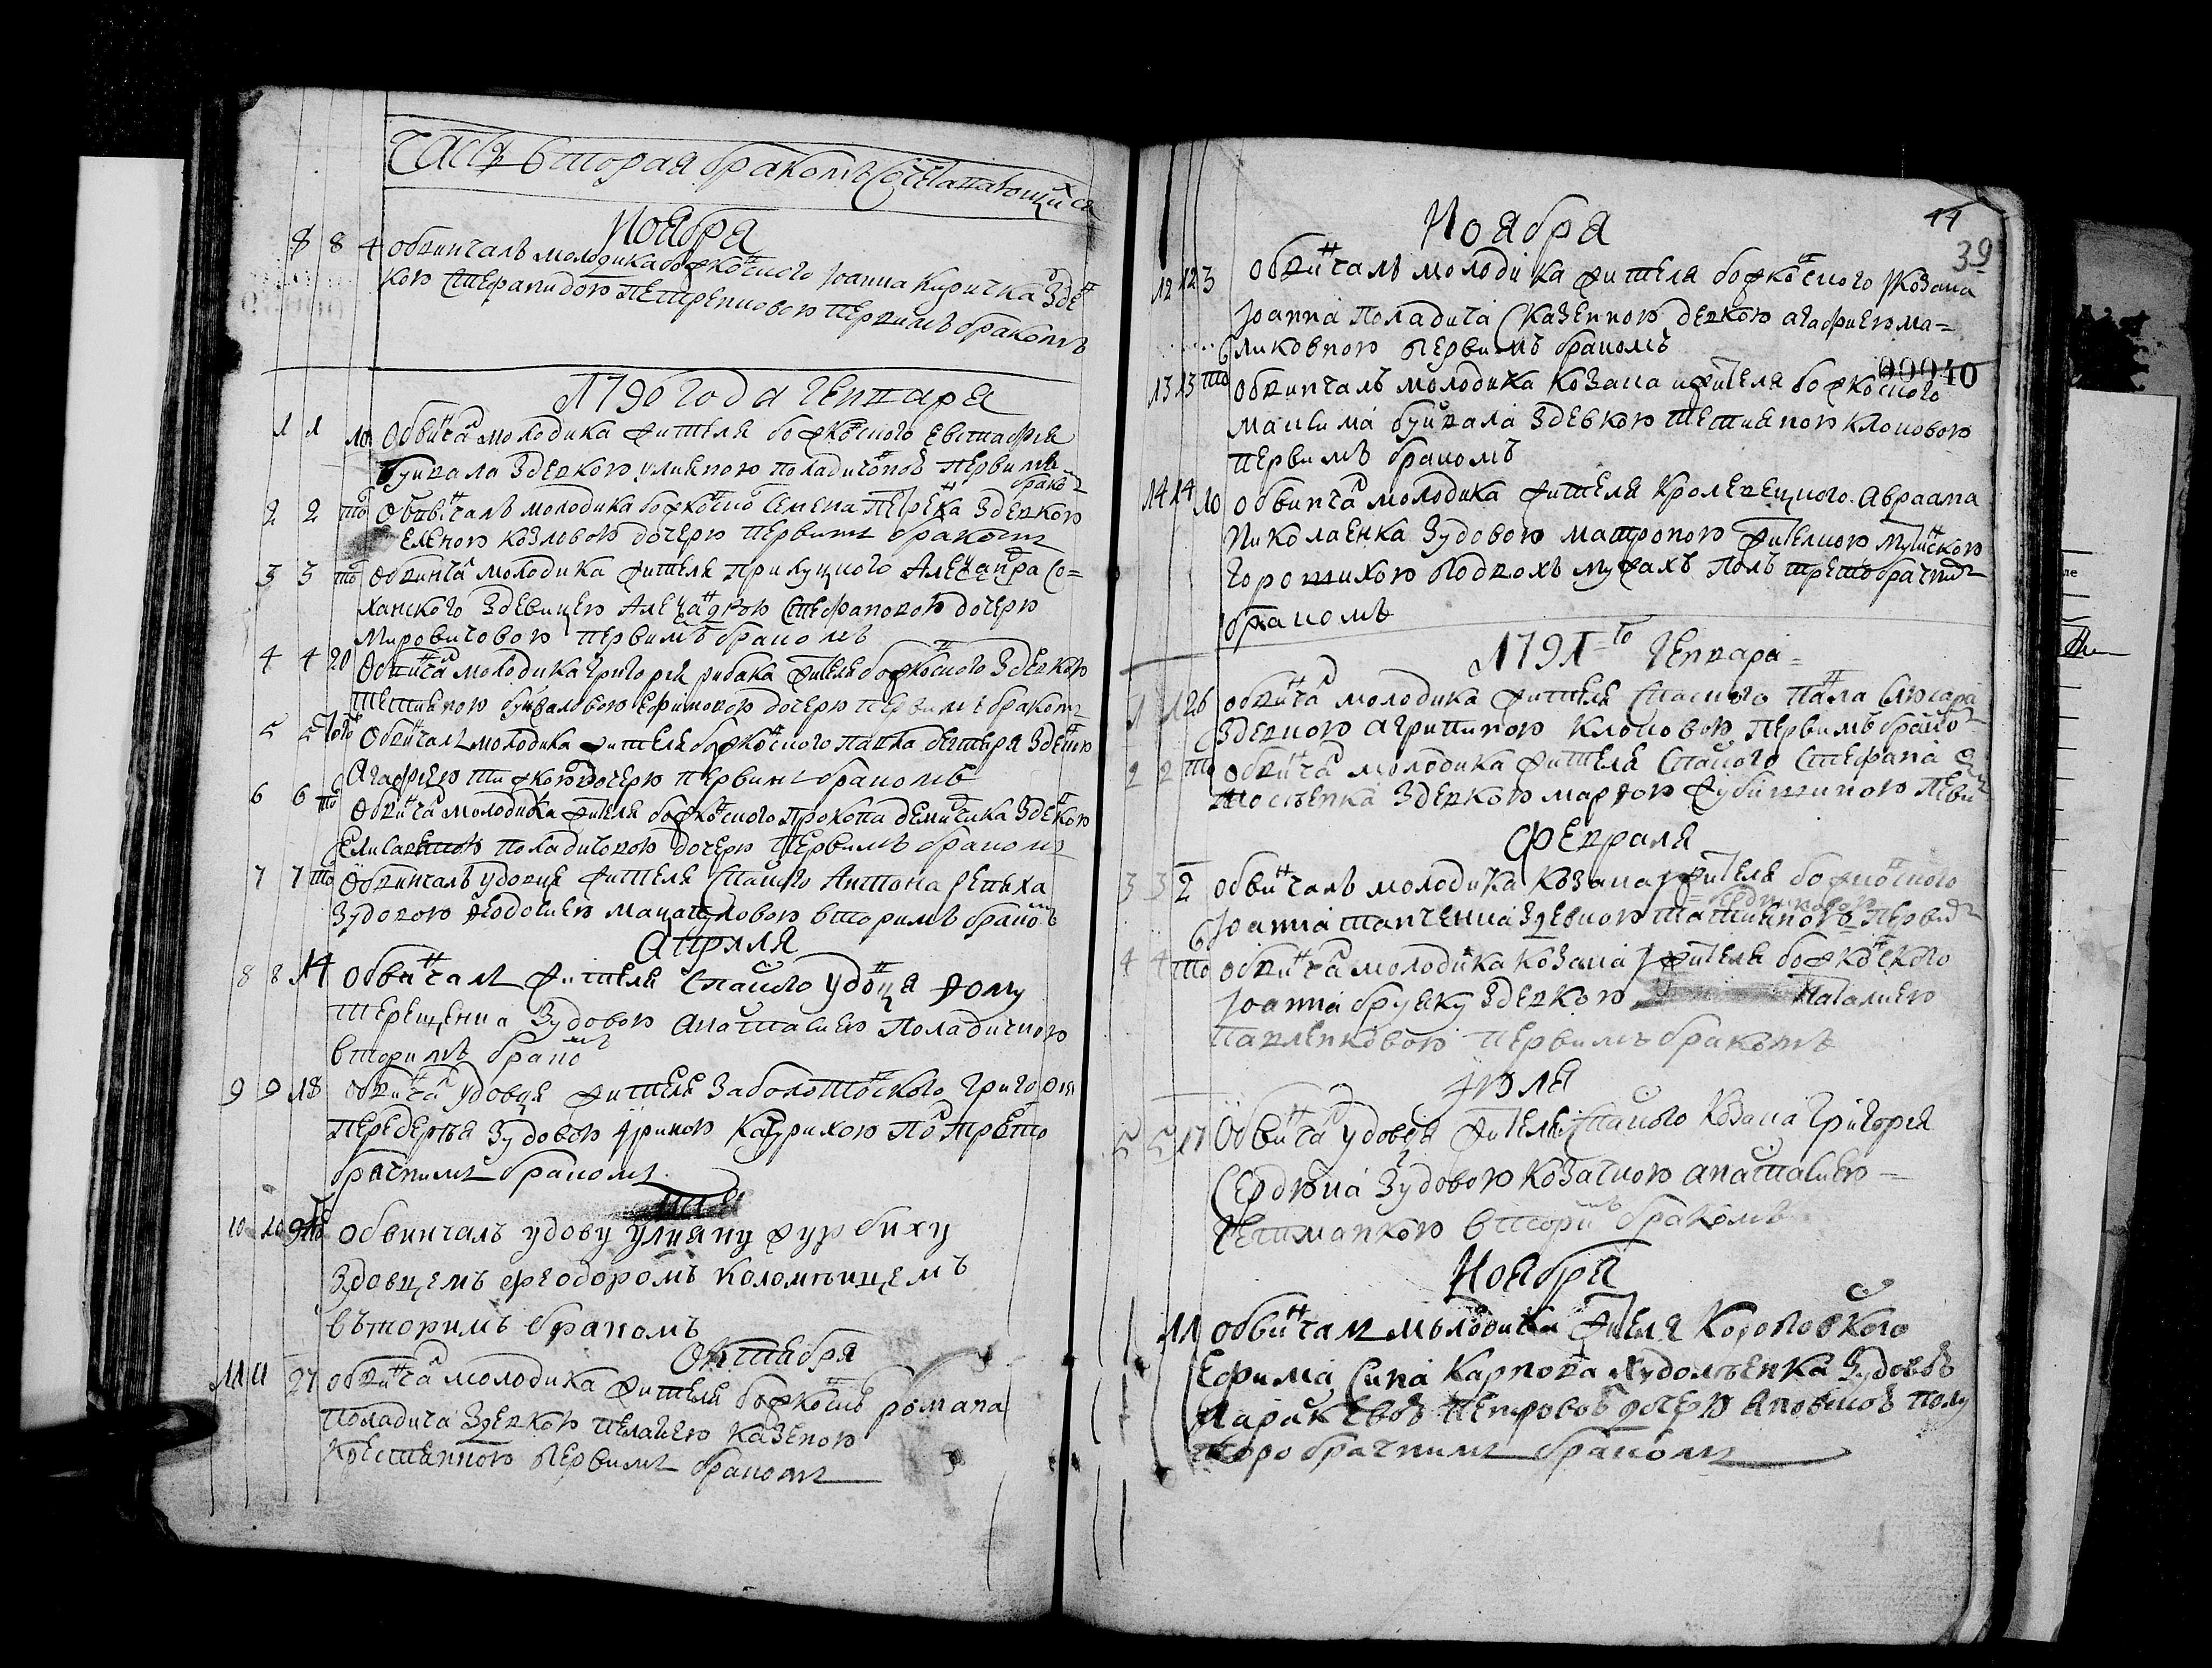 Часть вторая браком сочетающихся
Ноября
8 8 4 обвинчалъ молодика божковского Иоанна Киричка з дев
кою Стефанидою Петренковою первимъ бракомъ
1790 года генваря
1 1 10 Обвинчал молодика жителя божковского Евстафия
Буивала з девкою улияною поладичовною первимъ
браком
2 2 то Обвинчалъ молодика божковского Семена з девкою
Еленою козловою дочерю первим браком
3 3 то обвинчал молодика жителя прилуцкого Александра Со=
ханского з девицею Александрою Стефановою дочерю
Мировичовою первимъ бракомъ
4 4 20 Обвинчал молодика григория рибака жителя божковского з девкою
Тетяною буйваловою Ефимовою дочерю первимъ браком
5 5 того Обвинчалъ молодика жителя божковского павла з девкою
Агафиею дочерю первим бракомъ
6 6 то Обвинчал молодика жителя божковского Прокопа демичика з девкою
Елисаветою поладичовою дочерю первимъ браком
7 7 то Обвинчалъ удовця жителя Спаского Антона репеха
з удовою Феодосиею вторимъ браком
Априля
8 8 14 обвинчал жителя Спаского удовця Фому
терещенка з удовою Анастасиею Поладичкою
вторимъ браком
9 9 18 обвинчал удовця жителя Заболотовского григория
передерѣя з удовою Ириною Кацурихою по трето
брачним браком
мая
10 10 9 обвинчалъ удову улияну журбиху
з довцемъ феодоромъ коломѣицемъ
въторимъ бракомъ
Октября
11 11 27 обвинчал молодика жителя божковского романа
поладича з девкою пелагиею казеною
крестянкою первим браком
44
39
Ноября
12 12 3 обвинчалъ молодика жителя божковского козака
Иоанна Поладича с казенною девкою агафиею ма=
ликовною первимъ бракомъ
00040
13 13 то обвинчалъ молодика козака и жителя божковского
максима буйвала з девкою тетианою клоковою
первимъ бракомъ
14 14 10 обвинчал молодика жителя кролевецкого Авраама
Николаенка з удовою матроною жителкою
по двохъ мужахъ третобрачним
бракомъ
1791-го Генвара=
1 1 26 обвинчал молодика жителя Спаского павла слюсара
з девкою агрипиною клоковою первимъ браком
2 2 то обвинчал молодика жителя Спаского Стефана
з девкою марфою первим
Февраля
3 3 2 обвинчалъ молодика козака жителя божковского
Иоанна з девкою татианою первим
4 4 то обвинчал молодика козака жителя божковского
Иоанна бруяку з девкою Наталиею
павленковою первимъ бракомъ
Июля
5 5 17 Обвинчал удовця жителя Спаского козака григория
Сердюка з удовою козачкою анастасиею=
гетманкою вторимъ бракомъ
Ноября
11 обвинчал молодика жителя Короповского
Ефима сина Карпова з удовою
Параскевою петровою дочерю полу
торобрачним браком